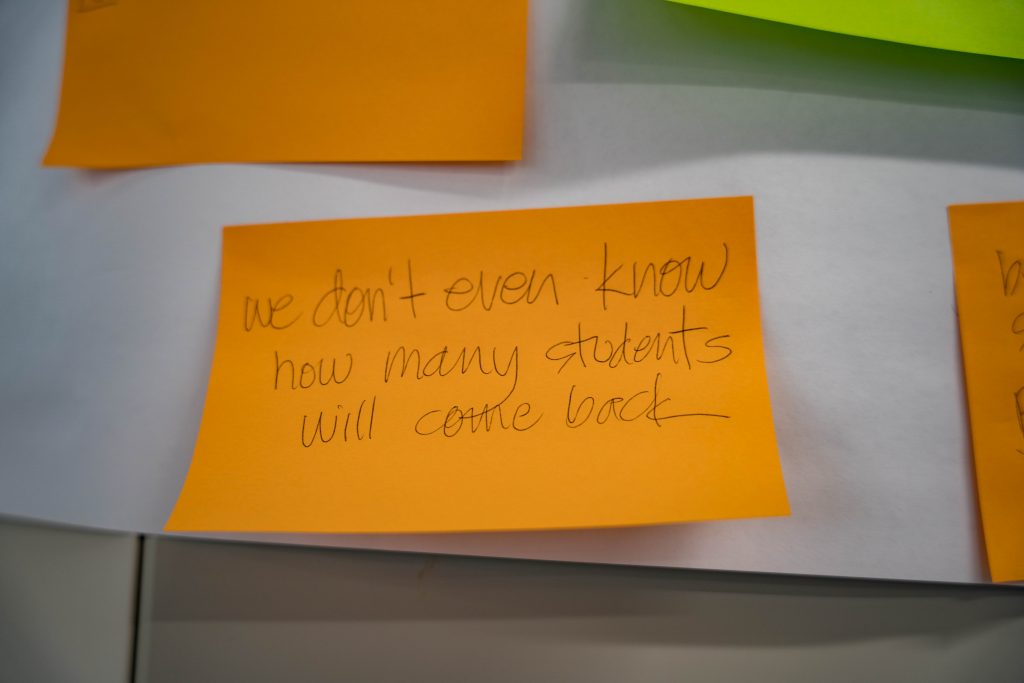 we don't even know
how many students
will come back